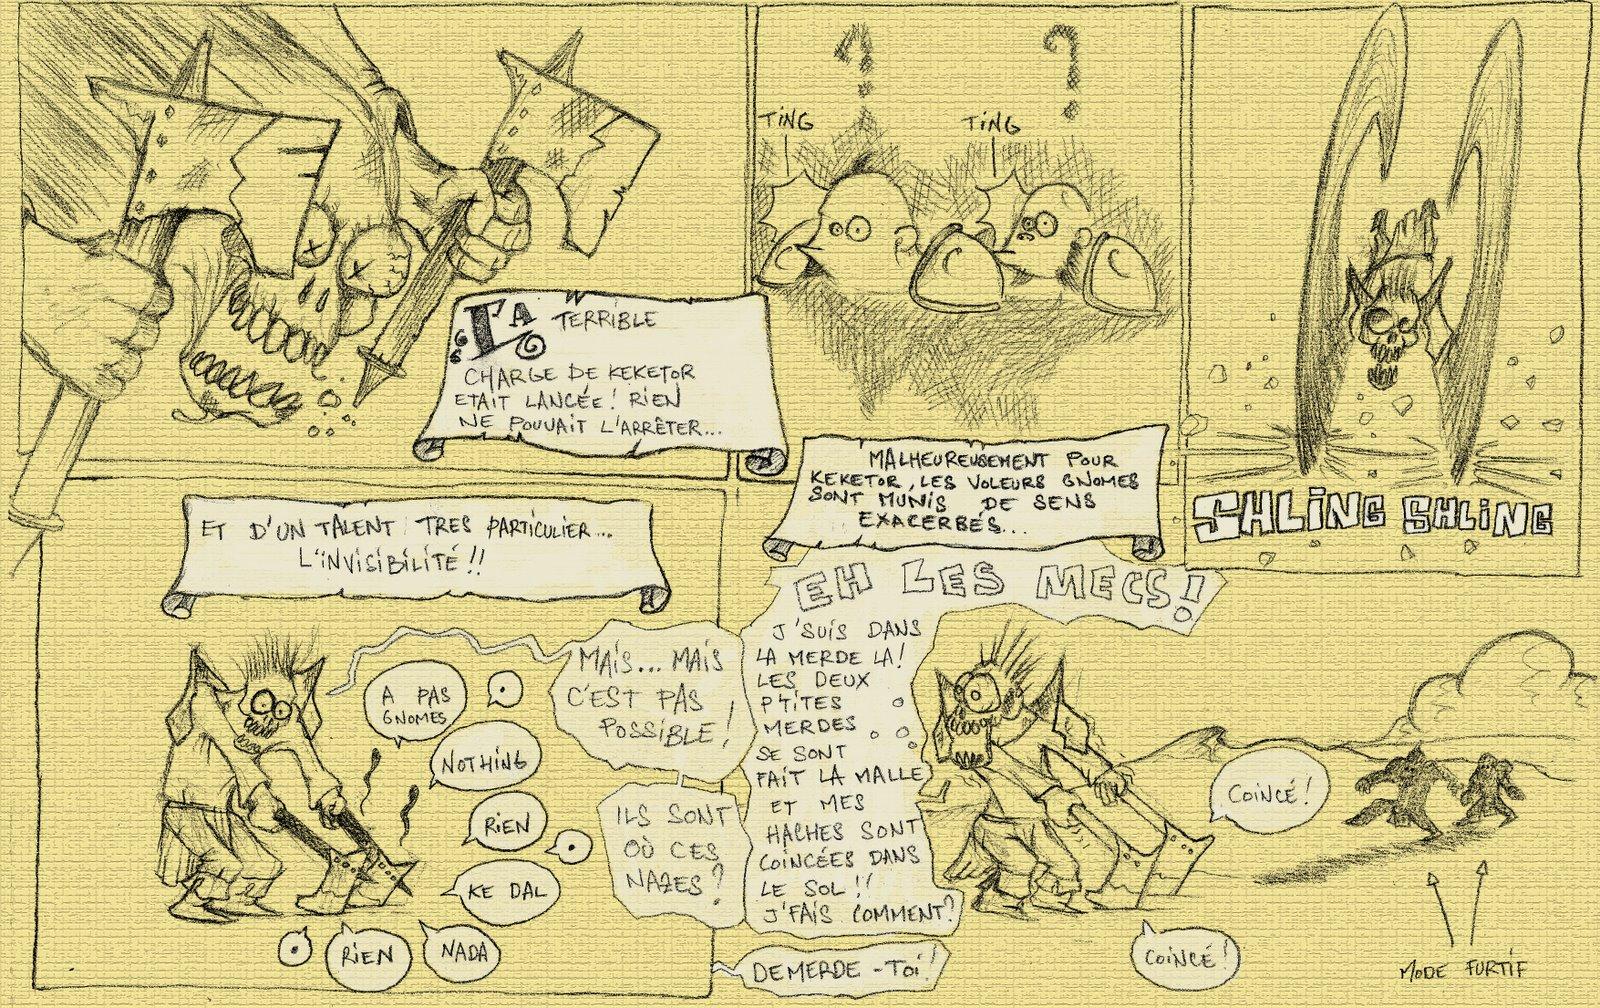 LA TERRIBLE
CHARGE DE KEKETOR
ETAIT LANCÉE! RIEN
NE POUVAIT L'ARRÊTER...
?
?
TING
TING
MALHEUREUSEMENT POUR
KEKETOR, LES VOLEURS GNOMES
SONT MUNIS DE SENS
EXACERBÉS...
SHLING SHLING
ET D'UN TALENT TRES PARTICULIER...
L'INVISIBILITÉ!!
MAIS... MAIS
C'EST PAS
POSSIBLE!
ILS SONT
OÙ CES
NAZES?
A PAS
GNOMES
.
NOTHING
RIEN
.
KE DAL
NADA
RIEN
.
EH LES MECS!
J'SUIS DANS
LA MERDE LA!
LES DEUX
P'TITES
MERDES
SE SONT
FAIT LA MALLE
ET MES
HACHES SONT
COINCÉES DANS
LE SOL!!
J'FAIS COMMENT?
DEMERDE-TOI!
COINCÉ!
COINCÉ!
MODE FURTIF